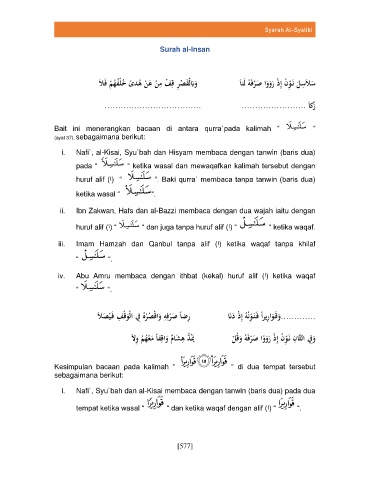 Syarah Al-Syatibi
Surah al-Insan
سَلَاسِلَ نَوِّنْ إِذْ رَوَوْا صَرْفَهُ لَنَا وَبِالْقَصْرِ قِفْ مِنْ عَنْ هُدًى خُلْفُهُمْ فَلَا
زَكَا ........................ ....................................
Bait ini menerangkan bacaan di antara qurra`pada kalimah “ سَلَـٰسِلَا۟ ”
(ayat 37), sebagaimana berikut:
i. Nafi`, al-Kisai, Syu`bah dan Hisyam membaca dengan tanwin (baris dua)
pada “ ” ketika wasal dan mewaqafkan kalimah tersebut dengan
huruf alif (ا) “ ”. Baki qurra` membaca tanpa tanwin (baris dua)
ketika wasal “ ”.
ii. Ibn Zakwan, Hafs dan al-Bazzi membaca dengan dua wajah iaitu dengan
huruf alif (ا) “ ” dan juga tanpa huruf alif (ا) “ ” ketika waqaf.
iii. Imam Hamzah dan Qanbul tanpa alif (ا) ketika waqaf tanpa khilaf
“ ”.
iv. Abu Amru membaca dengan ithbat (kekal) huruf alif (ا) ketika waqaf
“ ”.
.............وَقَوَارِيرًا فَنَوِّنْهُ إِذْ دَنَا رِضَا صَرْفِهِ وَاقْصُرْهُ فِي الْوَقْفِ فَيْصَلَا
وَفِي الثَّانِ نَوِّنْ إِذْ رَوَوْا صَرْفَهُ وَقُلْ يَمُدُّ هِشَامٌ وَاقِفًا مَعْهُمُ وِلَا
Kesimpulan bacaan pada kalimah “ قَوَارِيرَا۠ ۝١٥ قَوَارِيرَا۟ ” di dua tempat tersebut
sebagaimana berikut:
i. Nafi`, Syu`bah dan al-Kisai membaca dengan tanwin (baris dua) pada dua
tempat ketika wasal “ قَوَارِيرًا ” dan ketika waqaf dengan alif (ا) “ قَوَارِيرَا ”.
[577]